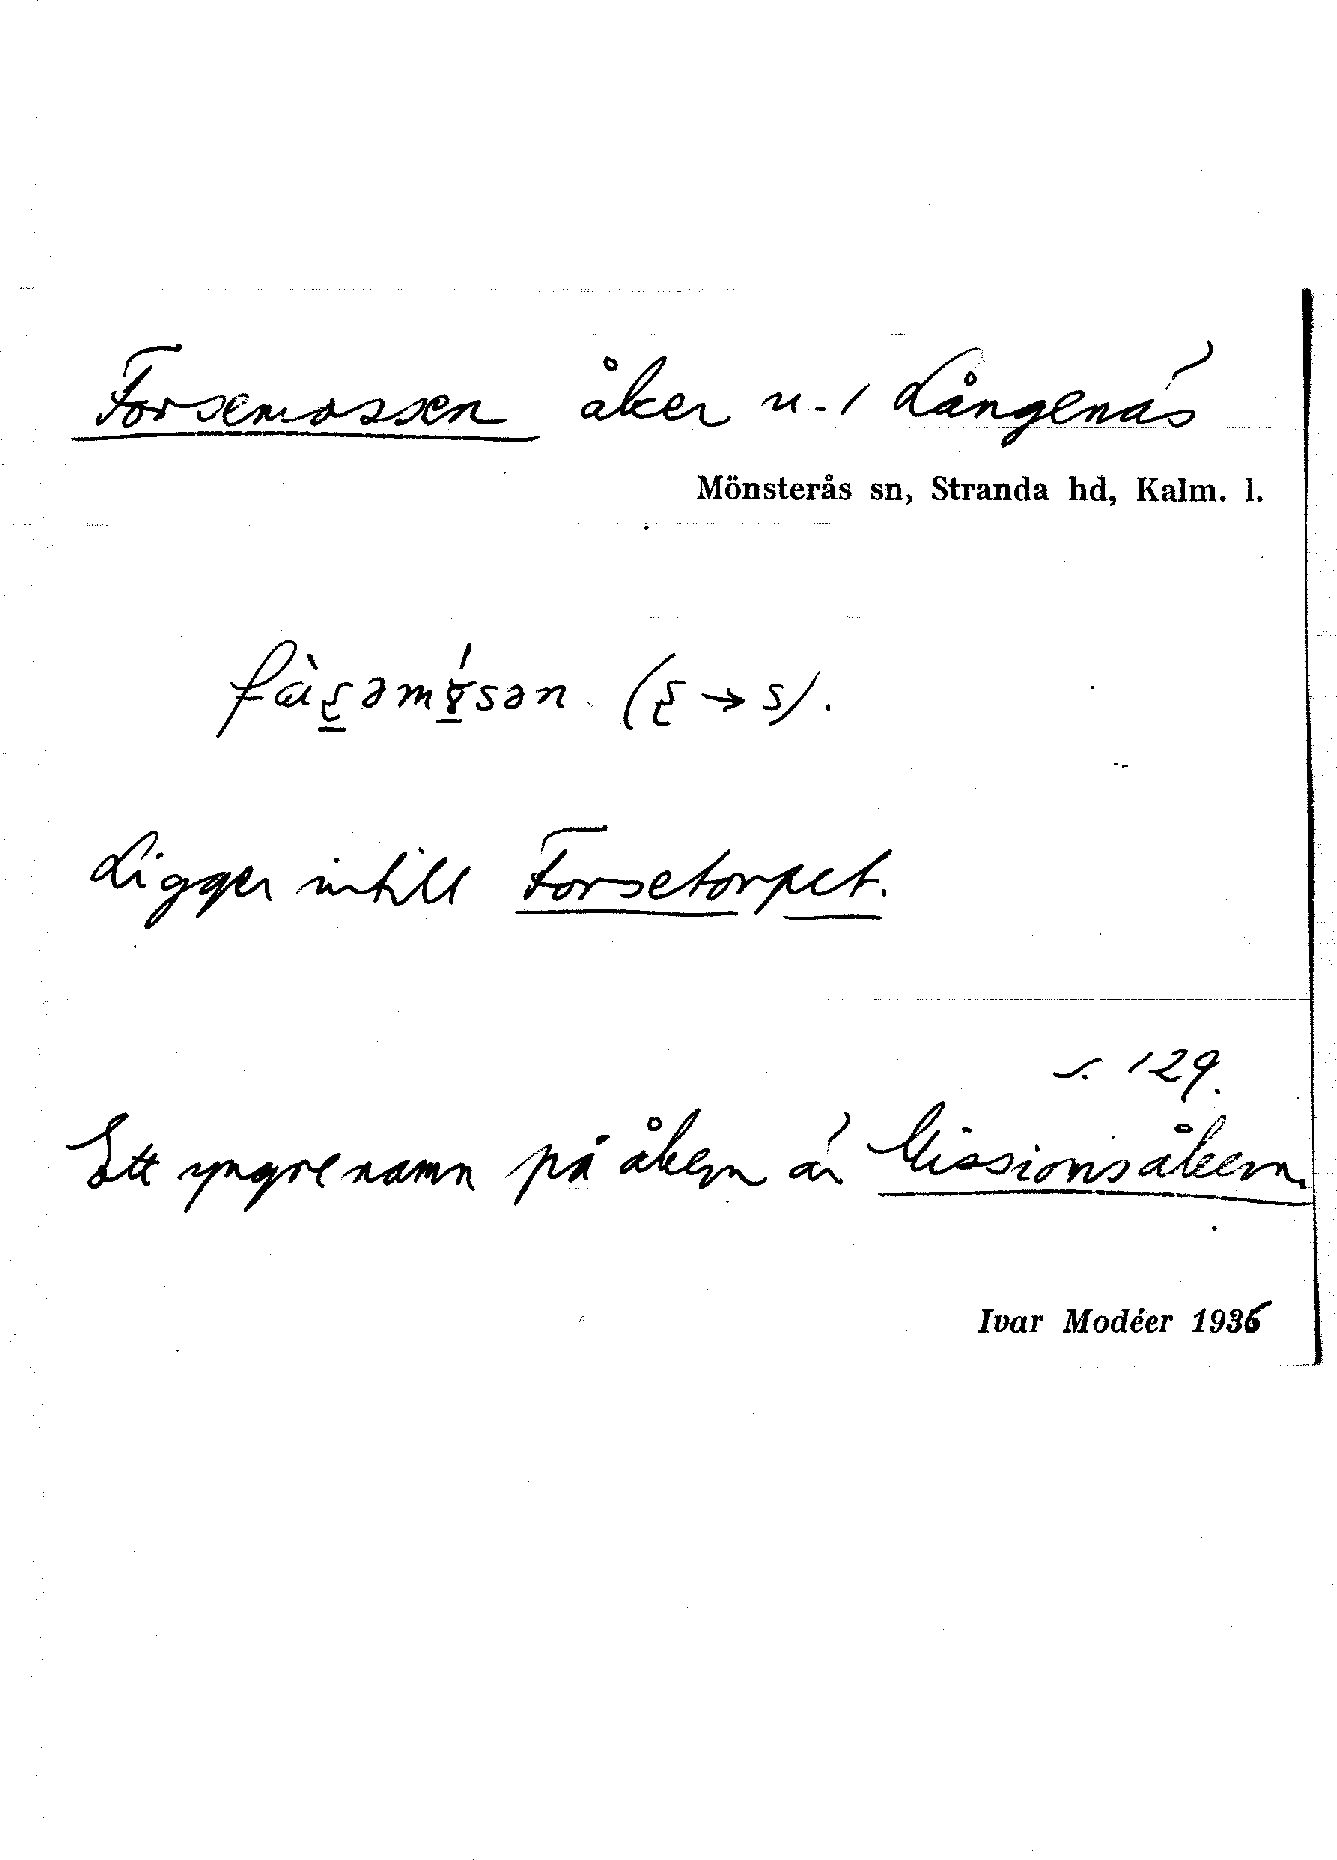 Forsemossen åker u. 1 Långenäs
Mönsterås sn, Stranda hd, Kalm. l.
(ʂ → s).
Ligger intill Forsetorpet.
s. 129.
Ett yngre namn på åkern är Missionsåkern.
Ivar Modéer 1936